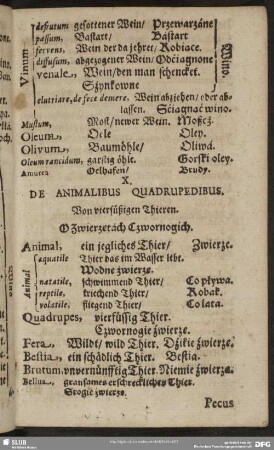 Vinum
defrutum gesottener Wein/ Przewarzáne
passum, Bastart/ Bastart
fervens, Wein der da jehre/ Robiace.
diffusum, abgezogener Wein/ Odćiagnone
venale, Wein/den man schencket.
Szynkowne
Wino.
elutriare, de fece demere, Wein abziehen/ oder ab-
lassen. Sćiagnać wino.
Mustum, Most/ newer Wein. Moszcz.
Oleum, Oele Oley.
Olivum, Baumöhle/ Oliwá.
Oleum rancidum, garstig öhle. Gorski oley.
Amurca Oelhafen/ Brudy.
X.
DE ANIMALIBUS QUADRUPEDIBUS.
Von vierfüßigen Thieren.
O Zwierzetách Czwornogich.
Animal, ein jegliches Thier/ Zwierze.
Animal
aquatile Thier das im Wasser lebt.
Wodne zwierze.
natatile, schwimmend Thier/ Co pływa.
reptile, kriechend Thier/ Robak.
volatile, fliegend Thier/ Co lata.
Quadrupes, vierfüssig Thier.
Czwornogie zwierze.
Fera, Wildt/ wild Thier. Dźikie zwierze.
Bestia, ein schädlich Thier. Bestia.
Brutum, unvernünfftig Thier. Niemie zwierze.
Bellua, grausames erschreckliches Thier.
Srogie zwierze.
Pecus
SLUB
DFG